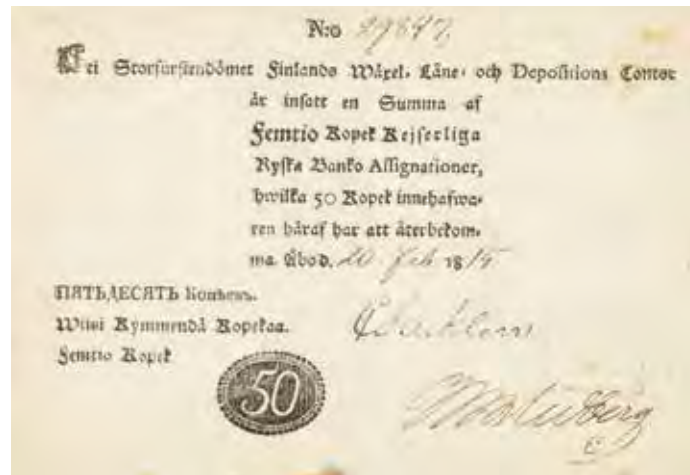 N:o 29847.
I Stor furstendömet Finlands Wäxel, Låne, och Depositions Contor
är insatt en Summa af
Femtio Kopek Kejserliga
Ryska Banko Assignationer,
hwilka 50 Kopek innehafwa-
ren häraf har att återbekom-
ma. Åbo d. 20 Feb 1815
ПЯТЬДЕСЯТЬ Копѣекъ.
Wiisi Kymmendä Kopekaa.
Femtio Kopek
50